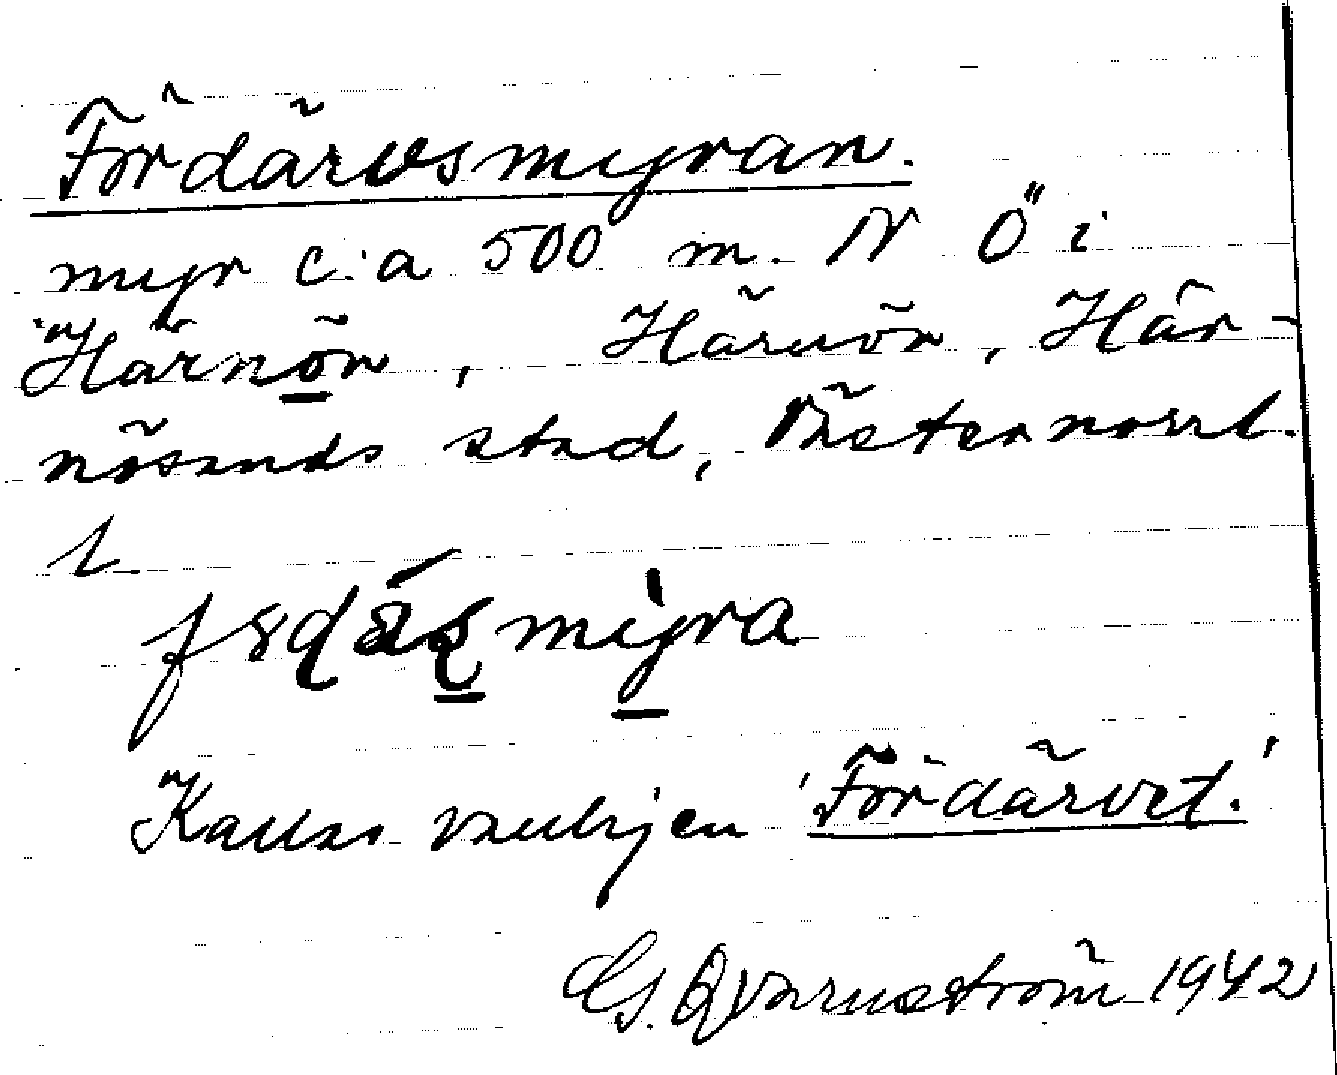 Fördärvsmyran.
myr c:a 500 m. N Ö i
Härnön, Härnön, Här-
nösands stad, Västernorrl.
l.
Kallas vanligen 'Fördärvet.'
G. Qvarnström 1942